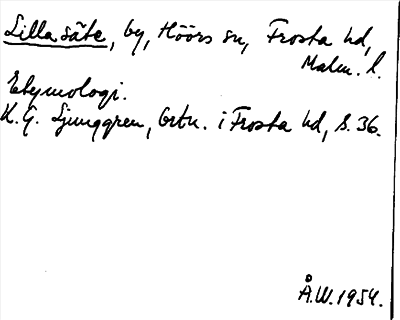 Lilla säte, by, Höörs sn, Frosta hd,
Malm. l.
Etymologi.
K.G. Ljunggren, Ortn. i Frosta hd, s. 36.
Å.W. 1954.